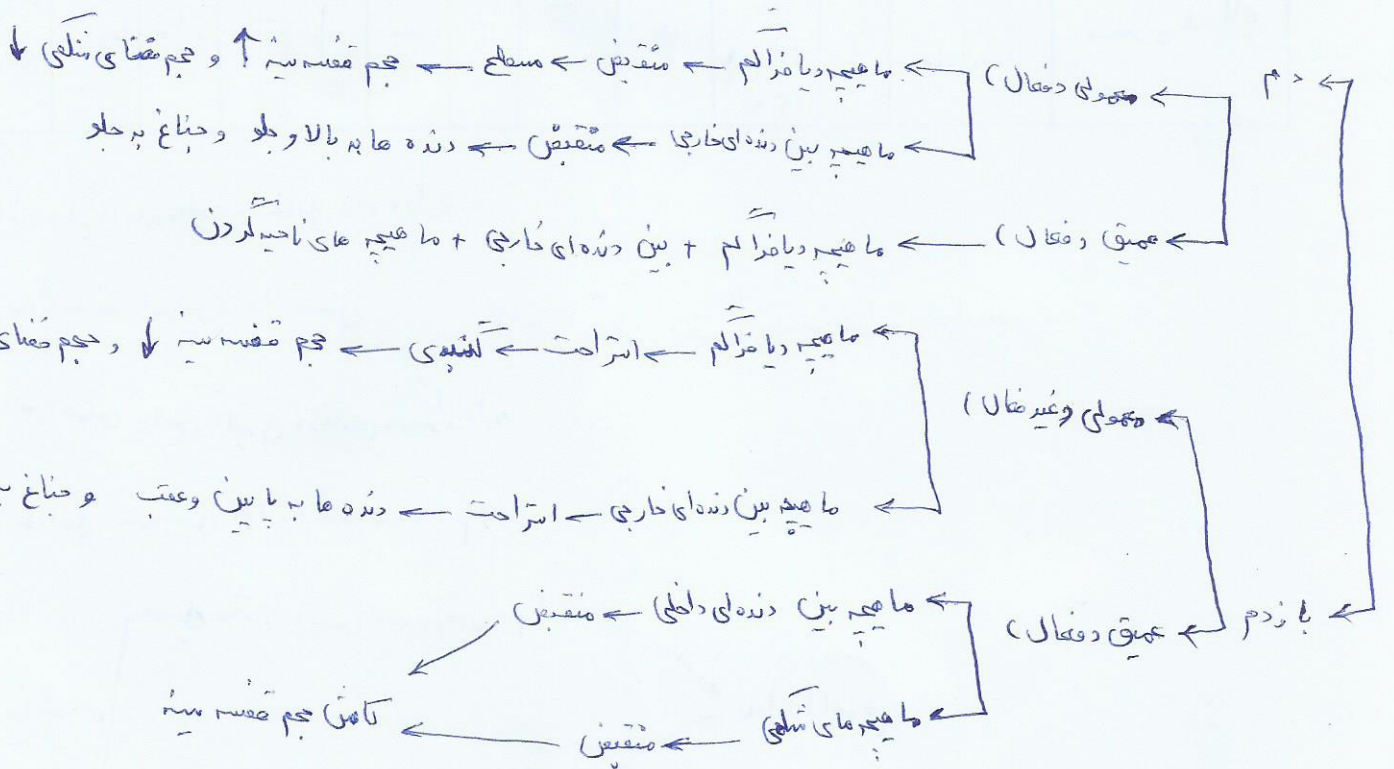 دم
معمولی (فعال)
ماهیچه دیافراگم ← منقبض ← مسطح ← حجم قفسه سینه ↑ و حجم فضای شکمی ↓
ماهیچه بین دنده‌ای خارجی ← منقبض ← دنده ها به بالا و جلو و جناغ به جلو
عمیق (فعال) ← ماهیچه دیافراگم + بین دنده‌ای خارجی + ماهیچه های ناحیه گردن
بازدم
معمولی (غیر فعال)
ماهیچه دیافراگم ← استراحت ← گنبدی ← حجم قفسه سینه ↓ و حجم فضای
ماهیچه بین دنده‌ای خارجی ← استراحت ← دنده ها به پایین و عقب و جناغ ب
عمیق (فعال)
ماهیچه بین دنده‌ای داخلی ← منقبض
ماهیچه های شکمی ← منقبض ← کاهش حجم قفسه سینه